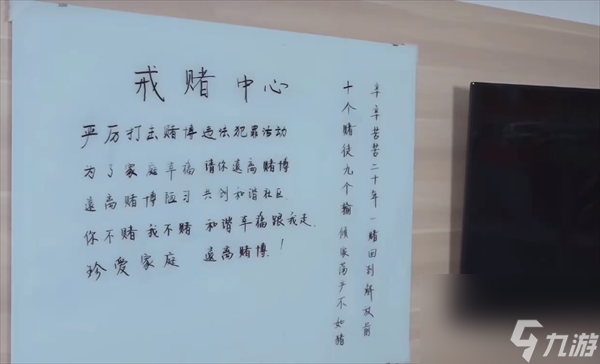 戒赌中心
严厉打击赌博违法犯罪活动
为了家庭幸福 请你远离赌博
远离赌博陋习 共创和谐社区
你不赌 我不赌 和谐幸福跟我走
珍爱家庭 远离赌博！
辛辛苦苦二十年一赌回到解放前
十个赌徒九个输倾家荡产不如猪
九游